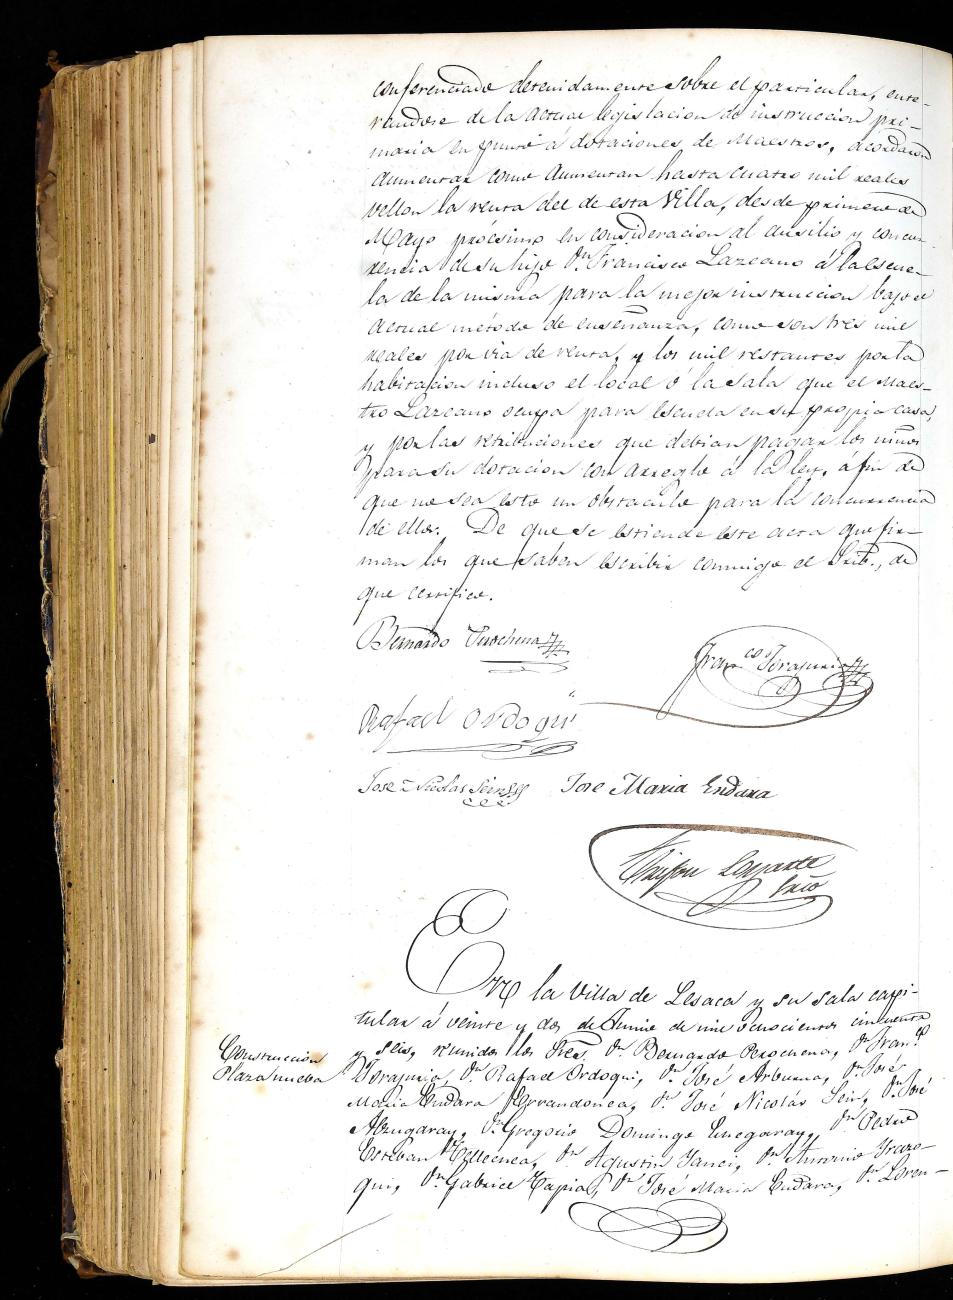 conferenciado detenidamente sobre el particular, ente-
randose de la actual legislacion de instruccion pri-
maria en punto á dotaciones de Maestros, acordaron
aumentar como aumentan hasta cuatro mil reales
vellon la renta del de esta Villa, desde primero de
Mayo procsimo en consideracion al ausilio y concur-
rencia de su hijo Dn. Francisco Lazcano á la escue-
la de la misma para la mejor instruccion bajo el
actual método de enseñanza, como son tres mil
reales por via de renta, y los mil restantes por la
habitacion incluso el local ó la sala que el Maes-
tro Lazcano ocupa para escuela en su propia casa,
y por las retribuciones que debian pagar los niños
para su dotacion con arreglo á la ley, á fin de
que no sea esto un obstaculo para la concurrencia
de ellos. De que se estiende este acta que fir-
man los que saben escribir conmigo el Srio., de
que certifico.
Bernardo
Franco
Rafael Ordoqui
Jose Nicolas Sein Jose Maria Endara
Srio
En la Villa de Lesaca y su sala capi-
tular á veinte y dos de Junio de mil ochocientos cincuenta
Construccion
Plaza nueva
y seis, reunidos los Sres. Dn. Bernardo Perochena, Dn. Franco.
Dn. Rafael Ordoqui, Dn. José Dn. José
Maria Endara Errandonea, Dn. José Nicolás Sein, Dn. José
Alzugaray, Dn. Gregorio Domingo Echegaray, Dn. Pedro
Esteban Tellechea, Dn. Agustin Yanci, Dn. Antonio Yrazo-
qui, Dn. Gabriel Tapia, Dn. José Maria Endara, Dn. Loren-